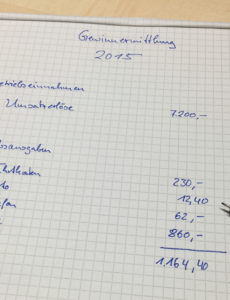 Gewinnermittlung
2015
etriebseinnahmen
Umsatzerlöse 7.200,-
bsausgaben
230,-
12,40
62,-
860,-
1.164,40